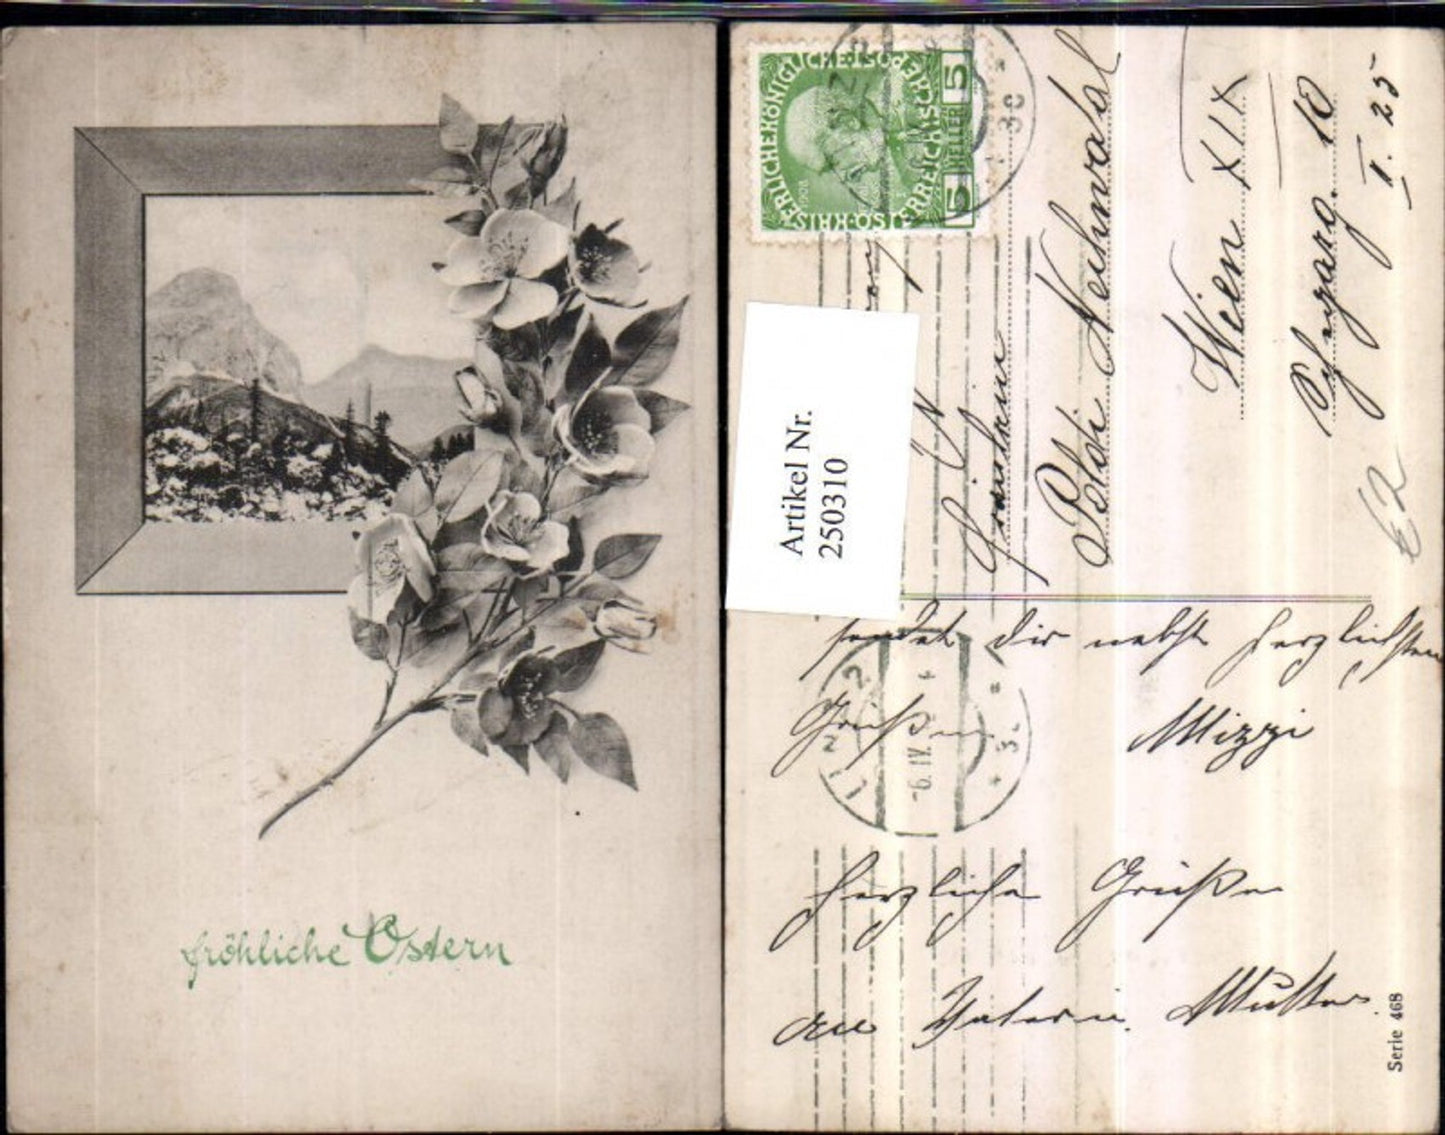 fröhliche Ostern
KAISERLICHE KÖNIGLICHE ÖSTERREICHISCHE POST
5 HELLER 5
1908
LINZ
Artikel Nr.
250310
Fräulein
Poldi
Wien XIX
10
I. 25
E2
sendet Dir nebst herzlichsten
Grüßen Mizzi
LINZ 2
-6. IV.
herzliche Grüße
an Mutter.
Serie 468